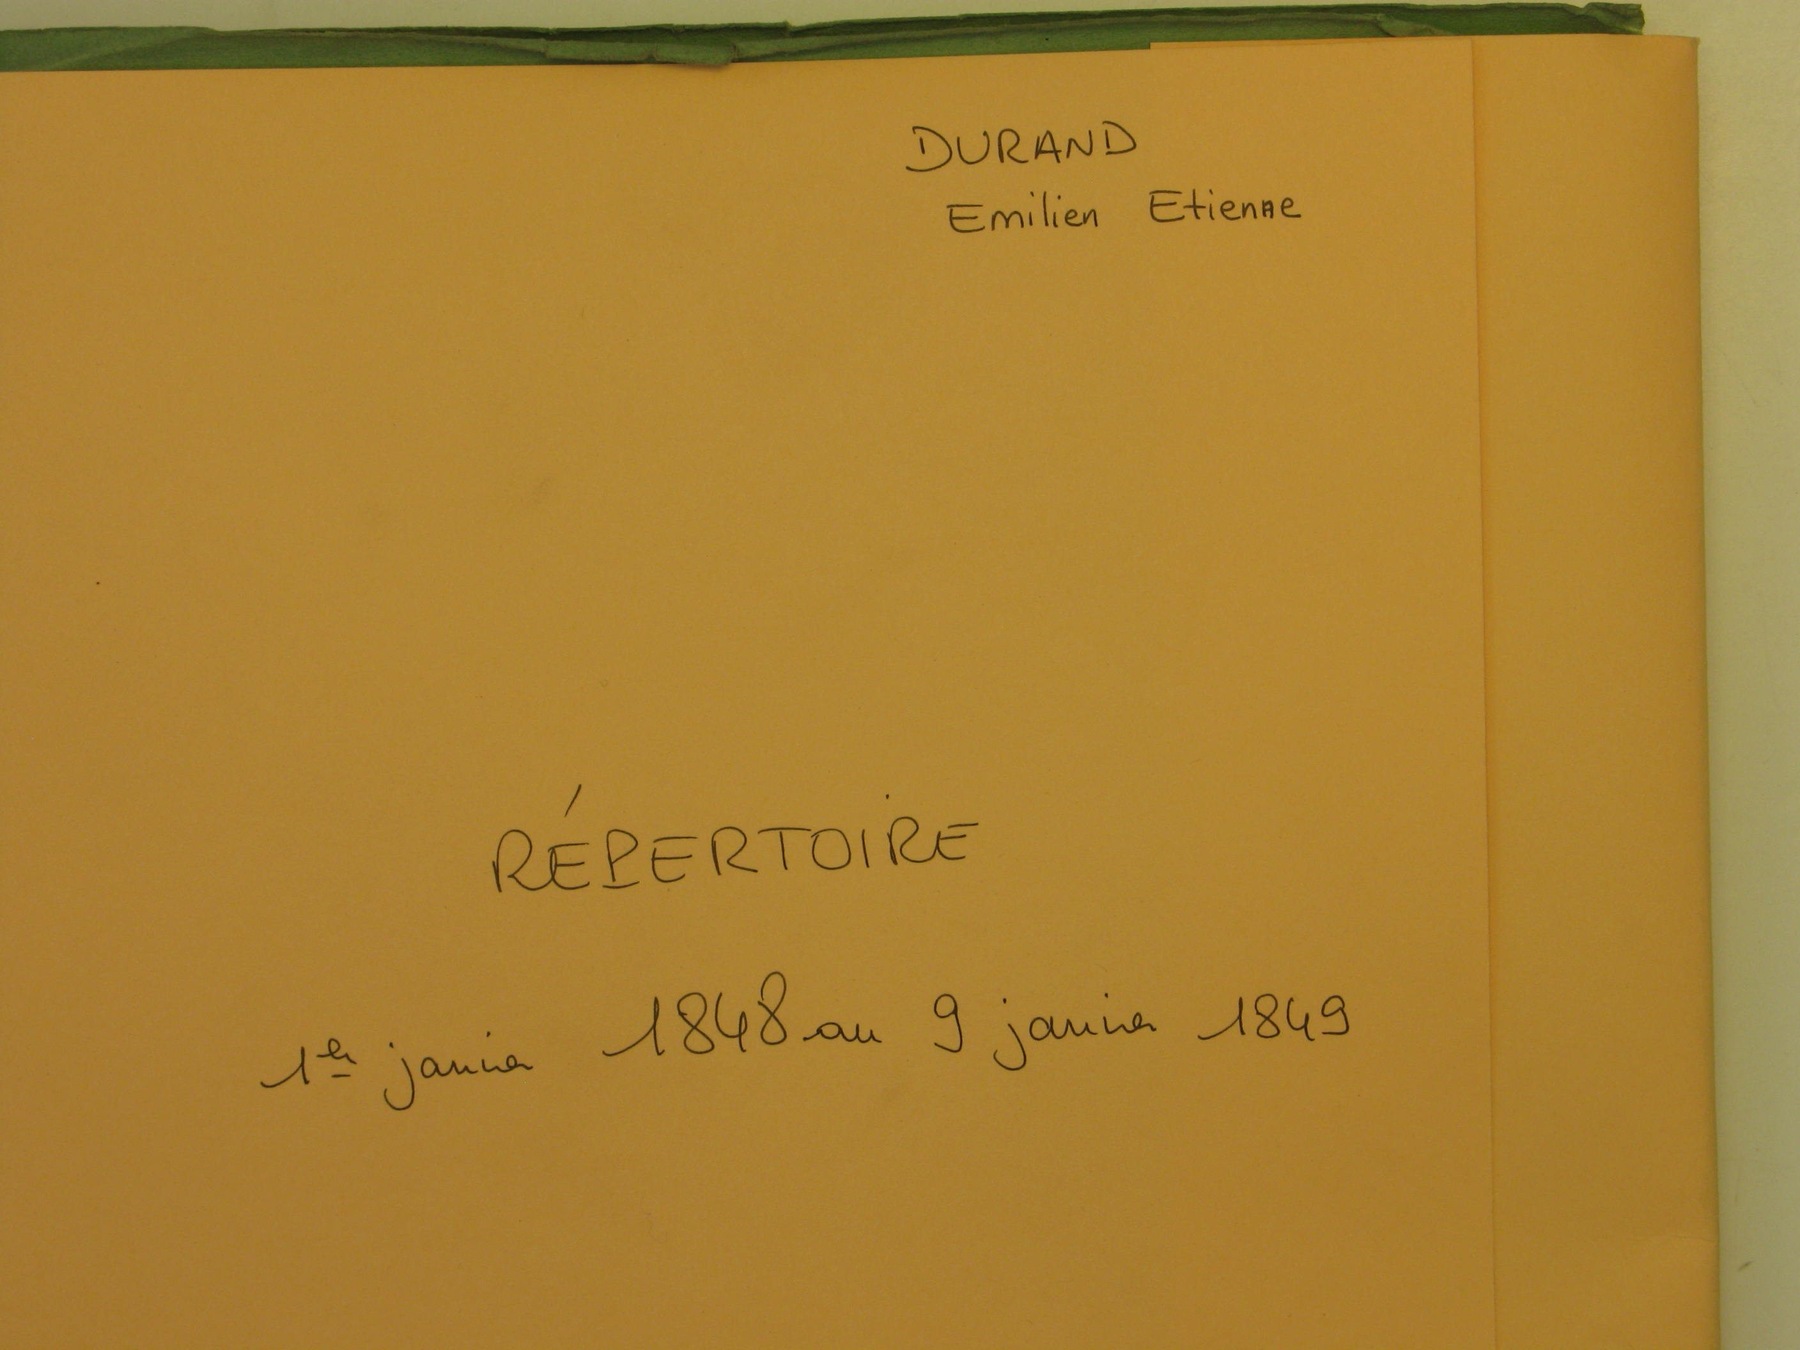 DURAND
Emilien Etienne
RÉPERTOIRE
1er janvier 1848 au 9 janvier 1849